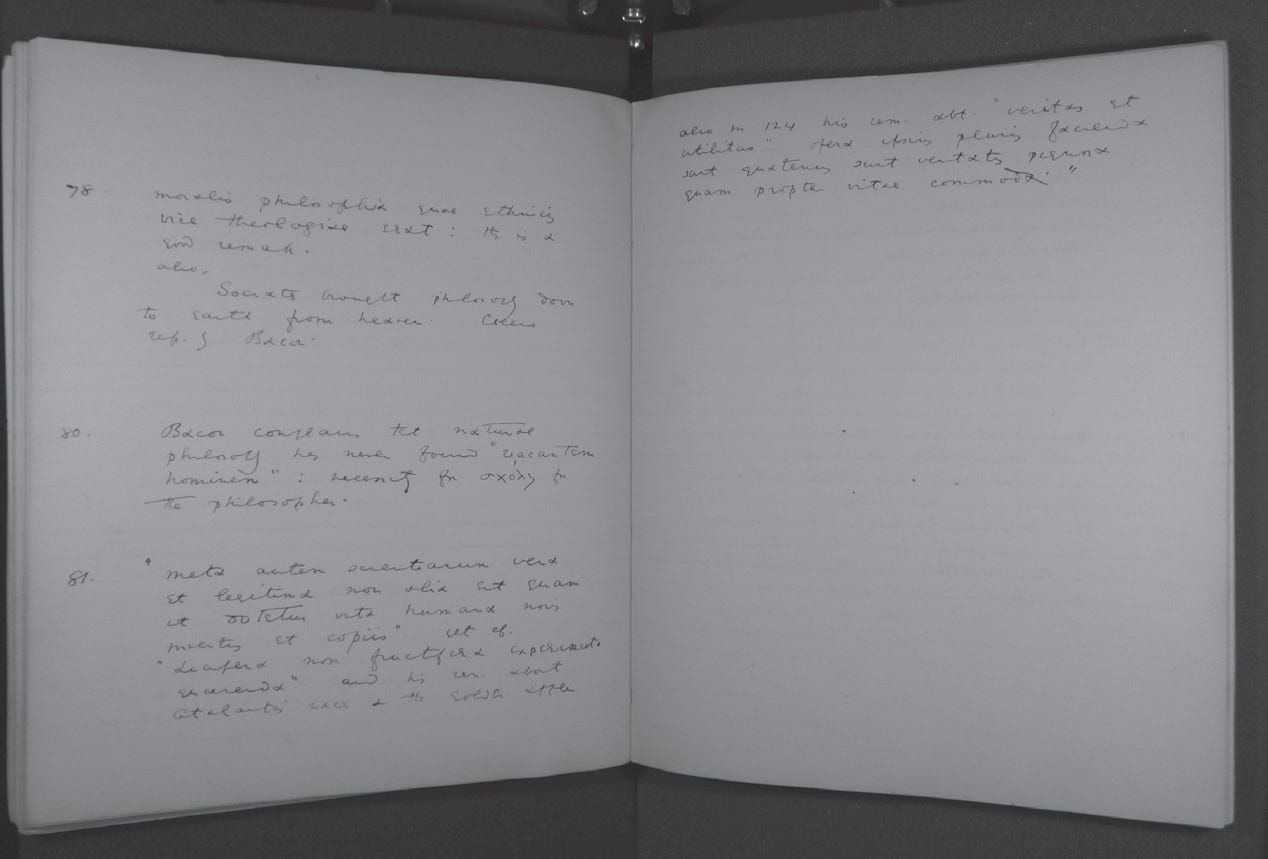 78. moralis philosophia quae ethnicis
vice theologiae erat : this is a
good remark.
also,
Socrates brought philosophy down
to earth from heaven. Cicero
rep. by Bacon.
80. Bacon complains that natural
philosophy has never found "vacantem
hominem" : necessity for σχολη for
the philosopher.
81. "meta autem scientiarum vera
et legitima non alia est quam
ut dotetur vita humana novis
inventis et copiis" yet cf.
"lucifera non fructifera experimenta
quaerenda" and his rem. about
Atalanta's race & the golden apple
also in 124 his rem. abt. "veritas et
utilitas" opera ipsa pluris facienda
sunt quatenus sunt veritatis pignora
quam propter vitae commoda"